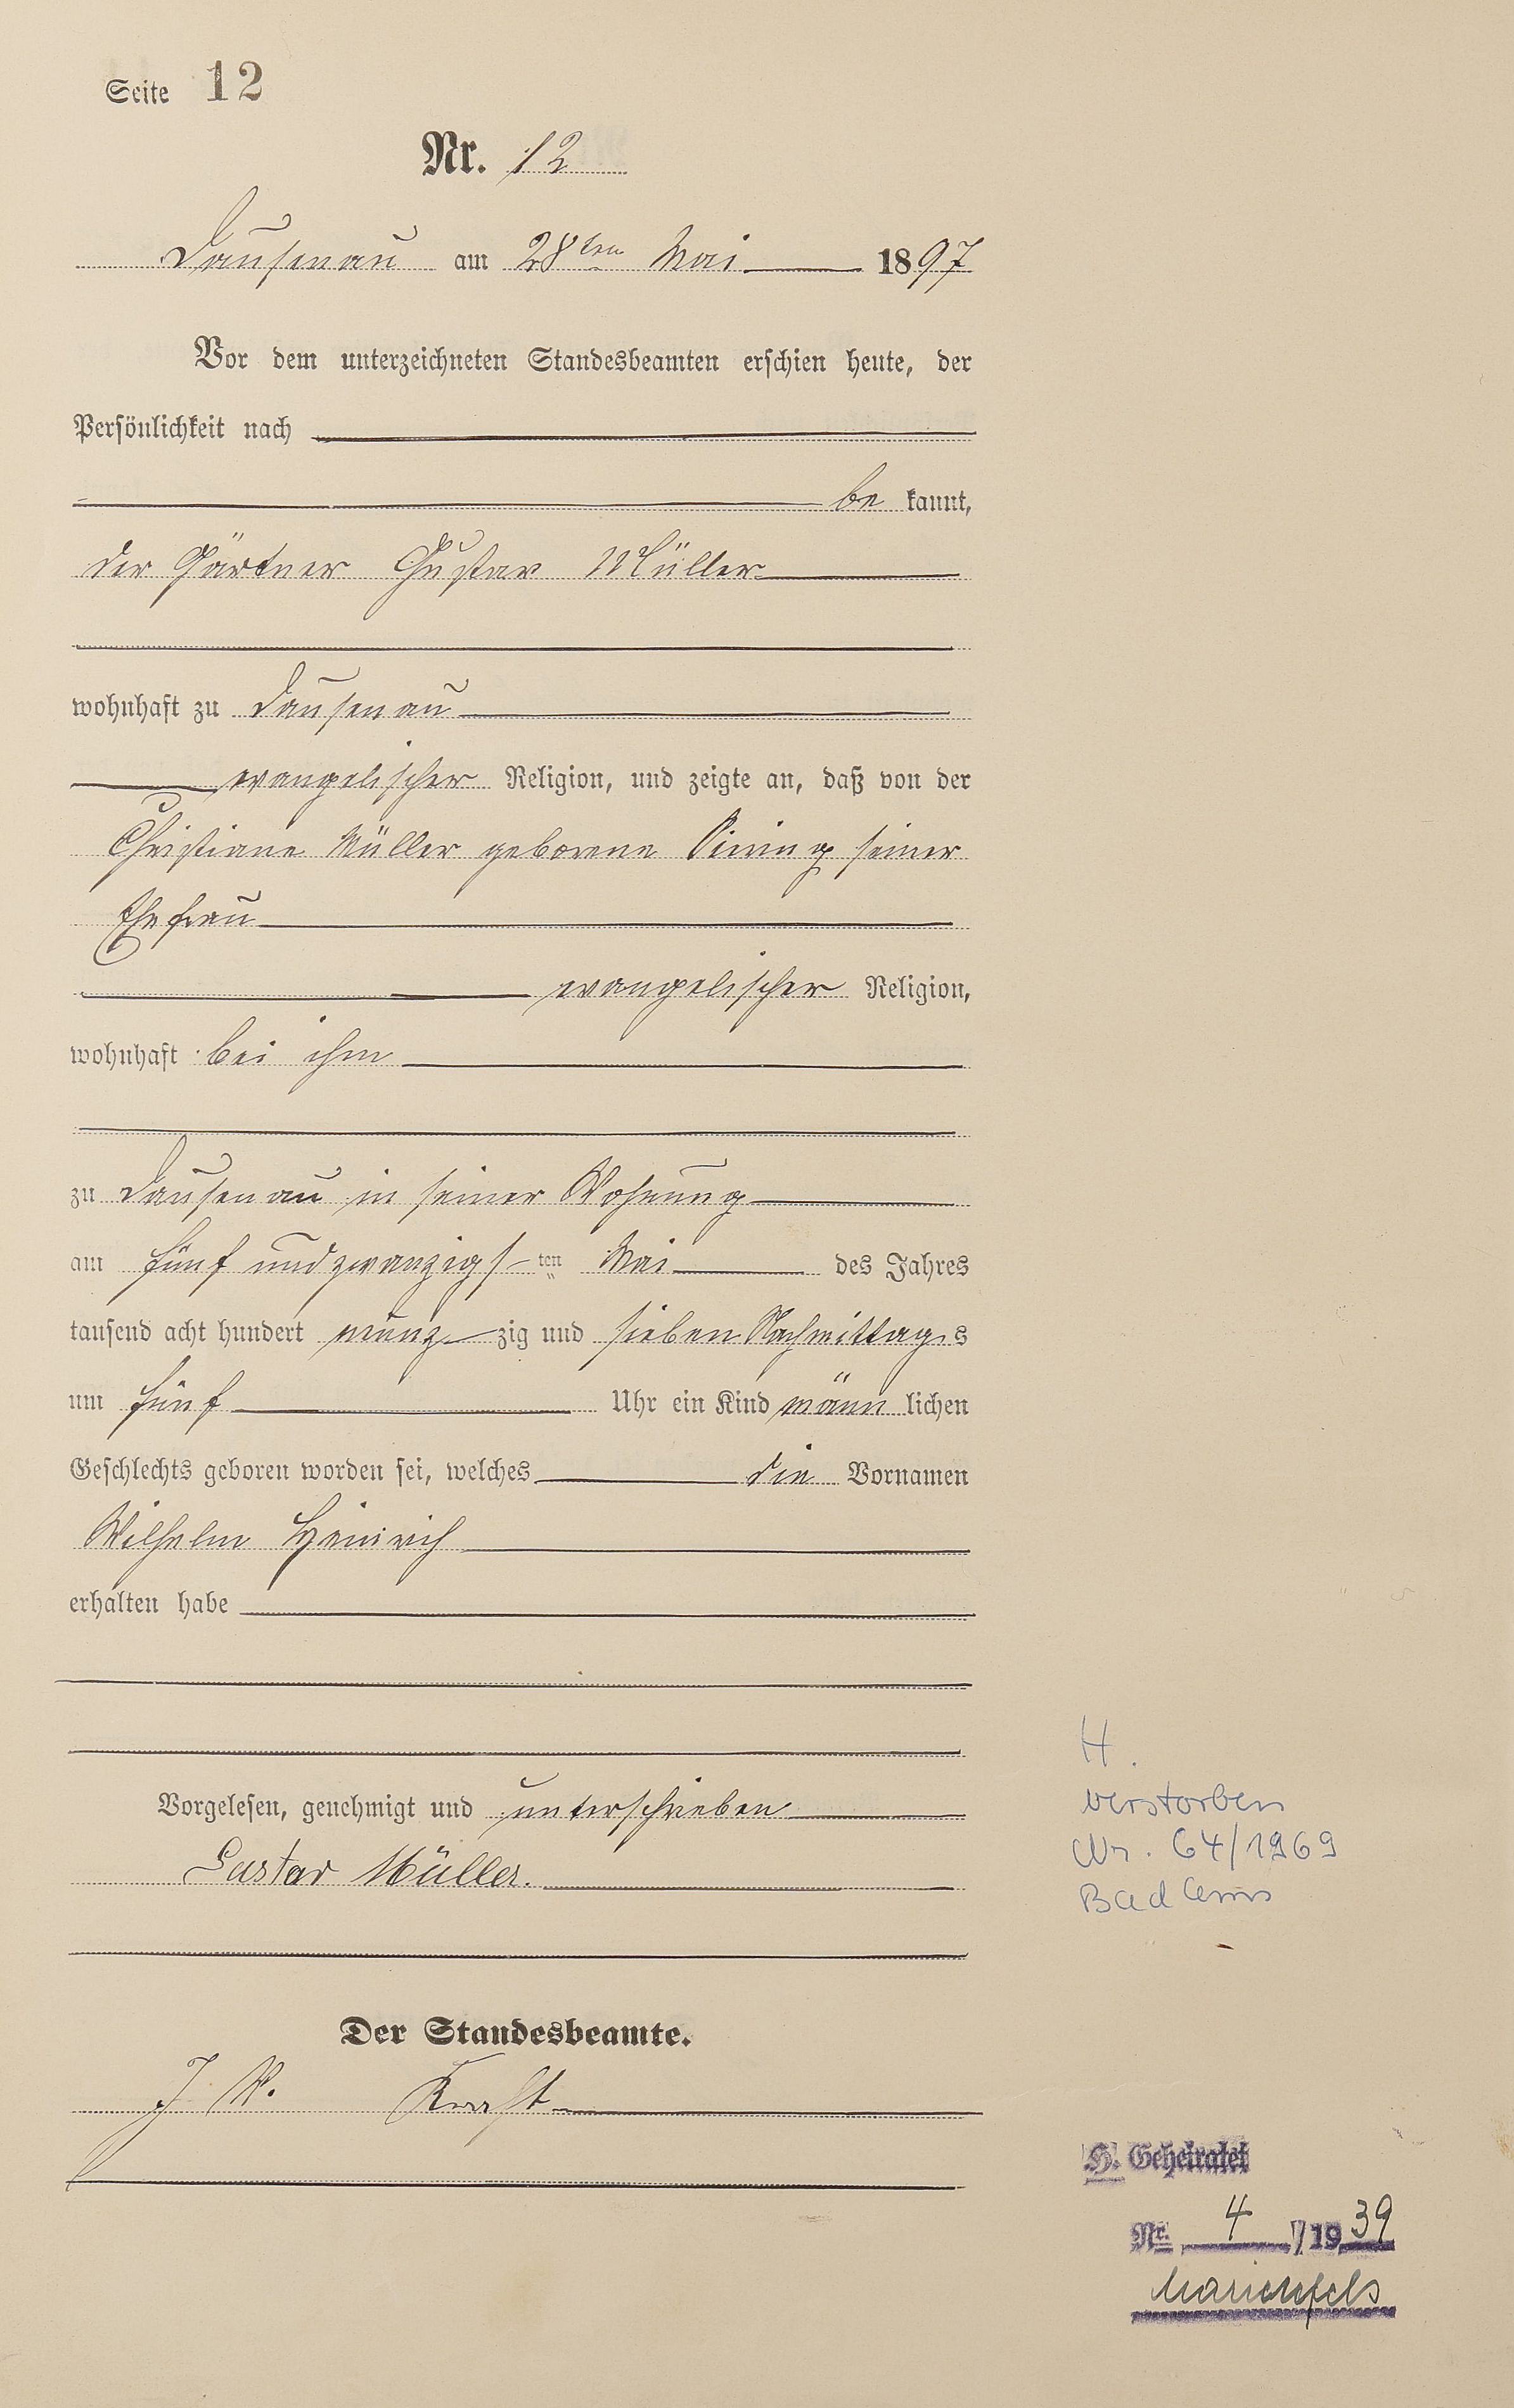 Seite 12
Nr. 12
Dausenau am 28ten Mai 1897
Vor dem unterzeichneten Standesbeamten erschien heute, der
Persönlichkeit nach
be kannt,
der Gärtner Gustav Müller
wohnhaft zu Dausenau
evangelischer Religion, und zeigte an, daß von der
Christiane Müller geborene seiner
Ehefrau
evangelischer Religion,
wohnhaft bei ihm
zu Dausenau in seiner Wohnung
am fünf und zwanzigsten Mai des Jahres
tausend acht hundert neunzig und sieben Nachmittags
um fünf Uhr ein Kind männlichen
Geschlechts geboren worden sei, welches die Vornamen
Wilhelm Heinrich
erhalten habe
Vorgelesen, genehmigt und unterschrieben
Gustav Müller.
Der Standesbeamte.
J. V. Kraft
H.
verstorben
Nr. 64/1969
Bad Ems
H. Geheiratet
Nr. 4 / 1939
Marienfels